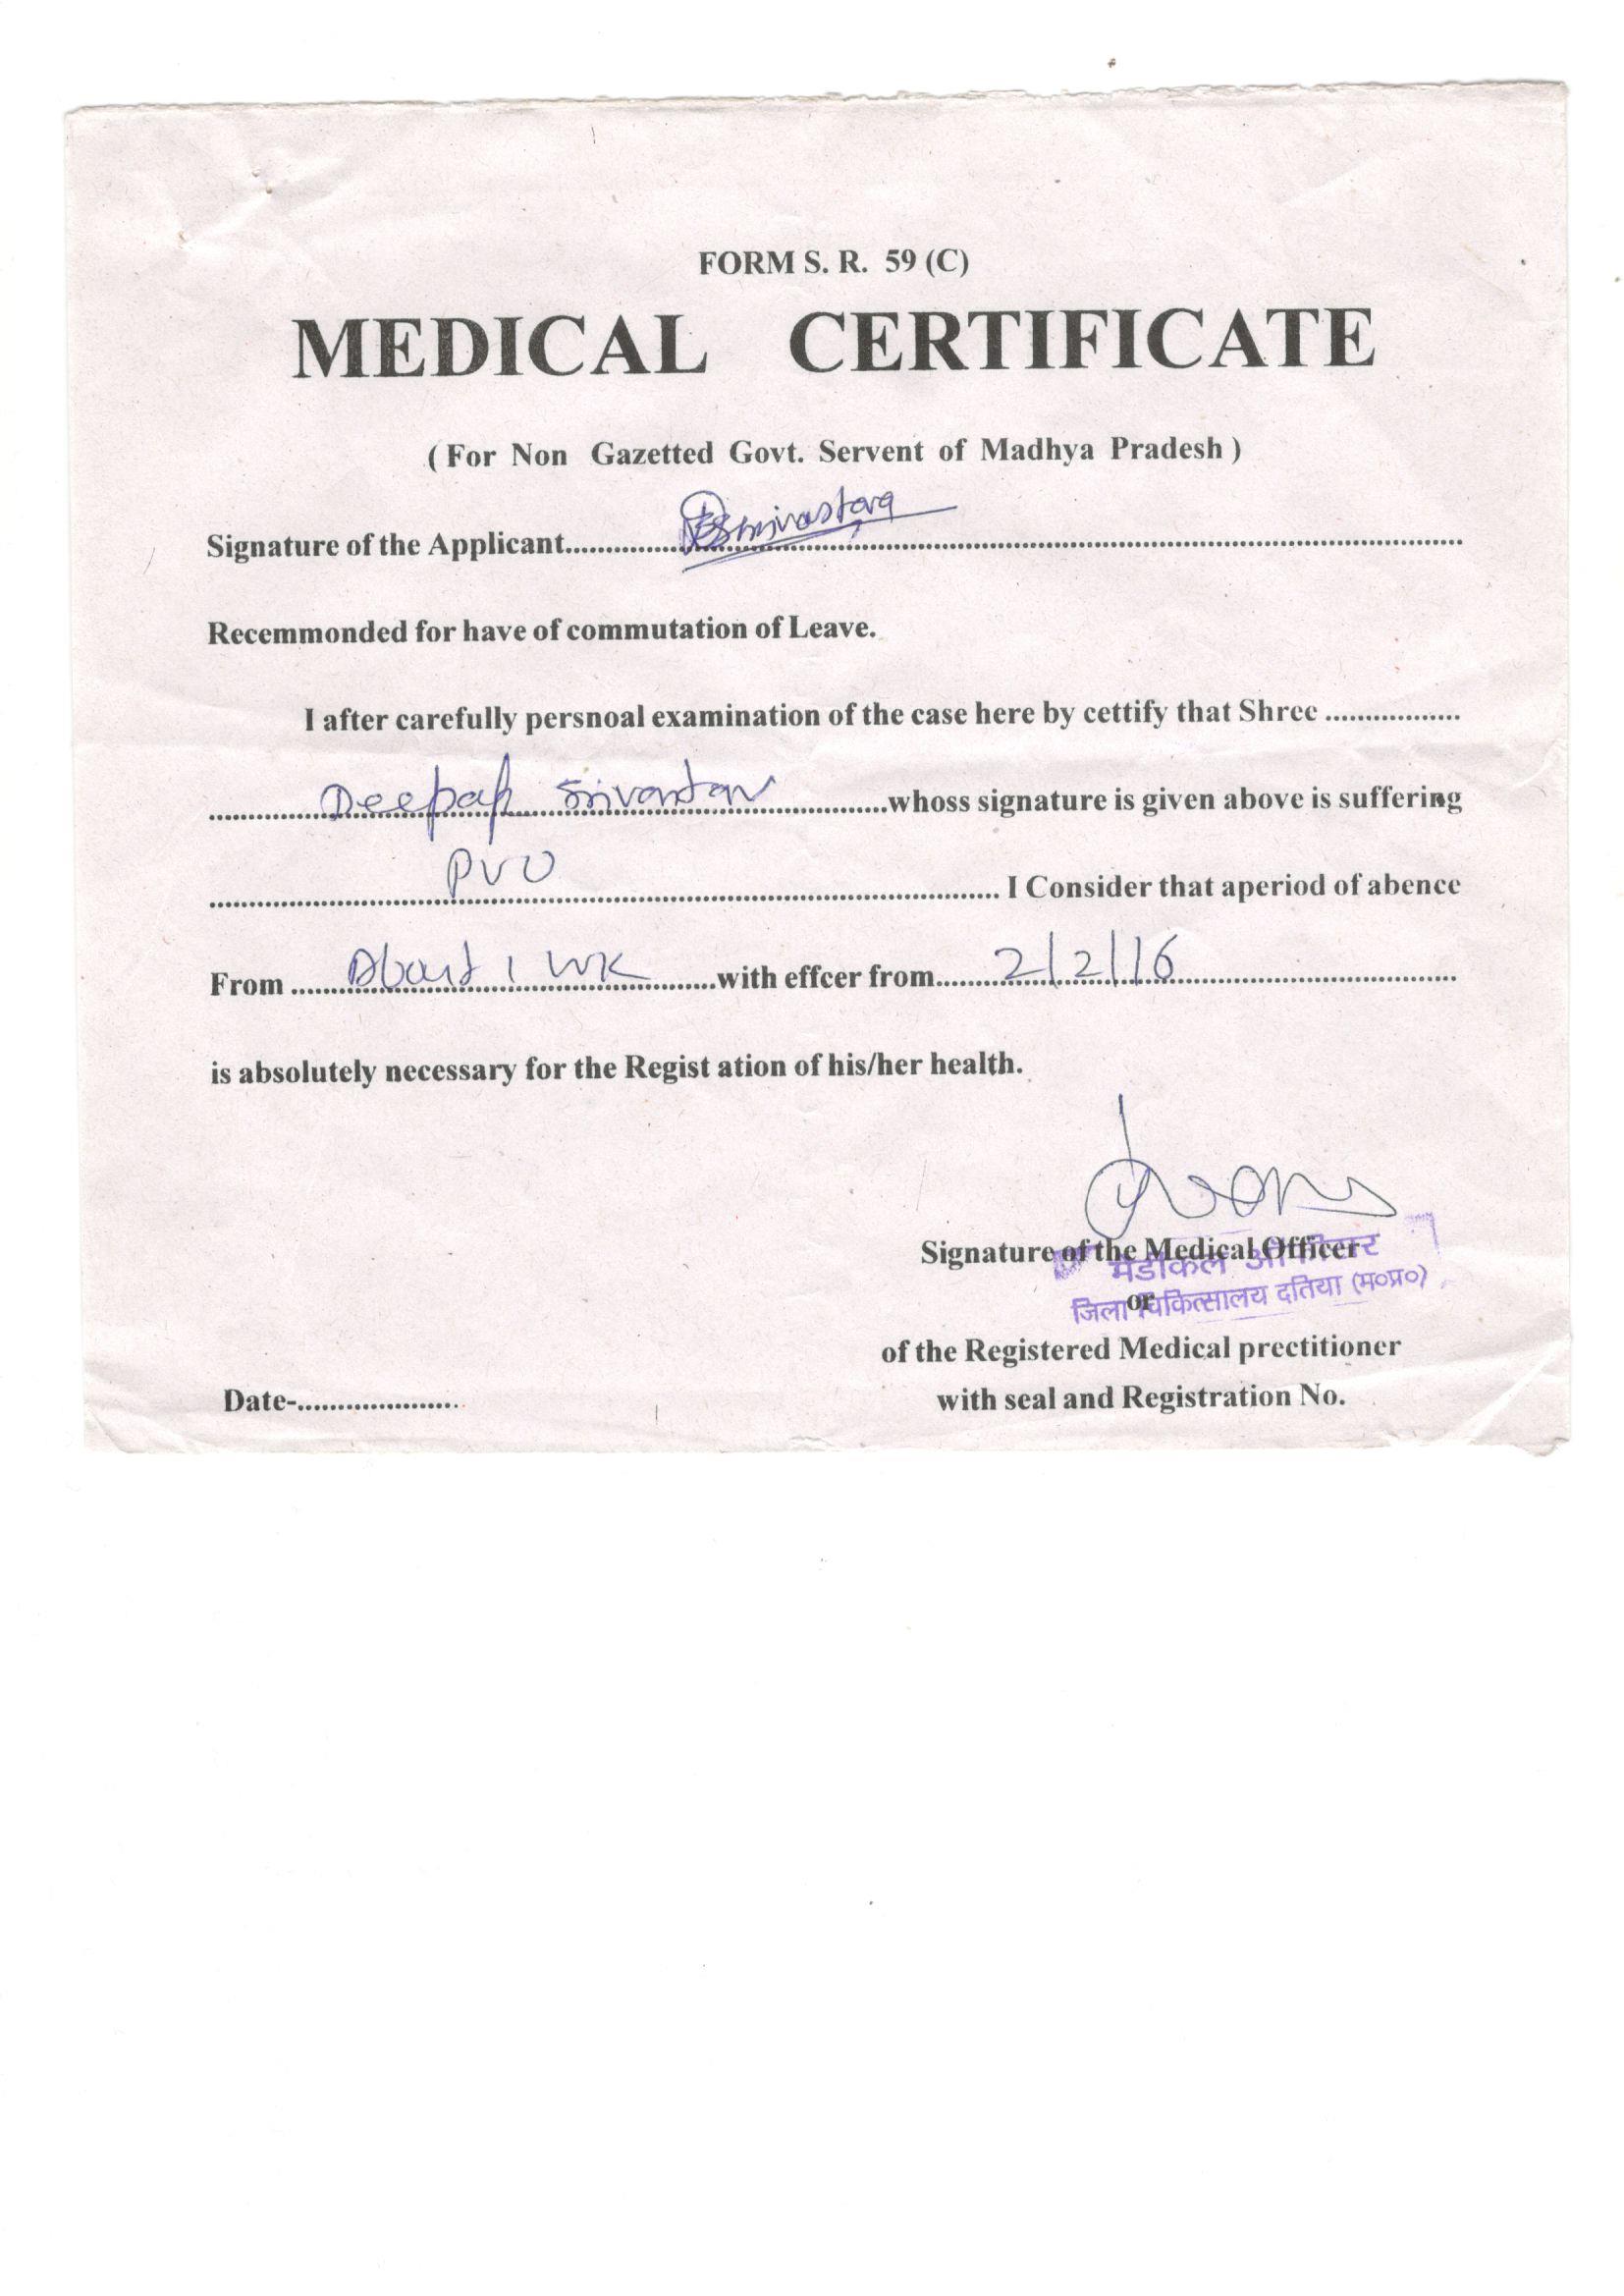 FORM S. R. 59 (C)
MEDICAL CERTIFICATE
( For Non Gazetted Govt. Servent of Madhya Pradesh )
Signature of the Applicant.......... Shrivastava ..........
Recemmonded for have of commutation of Leave.
I after carefully persnoal examination of the case here by cettify that Shree ..........
.......... Deepak Srivastav ..........whoss signature is given above is suffering
.......... PUO .......... I Consider that aperiod of abence
From .......... About 1 WK ..........with effcer from.......... 2/2/16 ..........
is absolutely necessary for the Regist ation of his/her health.
Signature of the Medical Officer
मेडीकल
or
जिला चिकित्सालय दतिया (म०प्र०)
of the Registered Medical prectitioner
Date-.......... with seal and Registration No.